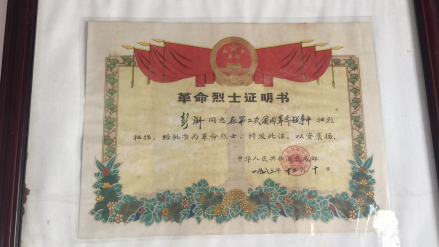 革命烈士证明书
彭湃同志在第二次国内革命战争中壮烈
牺牲，经批准为革命烈士。特发此证，以资褒扬。
中华人民共和国民政部
一九八三年十二月十日